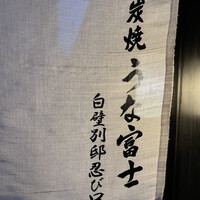 炭焼 うな富士
白壁別邸忍び口